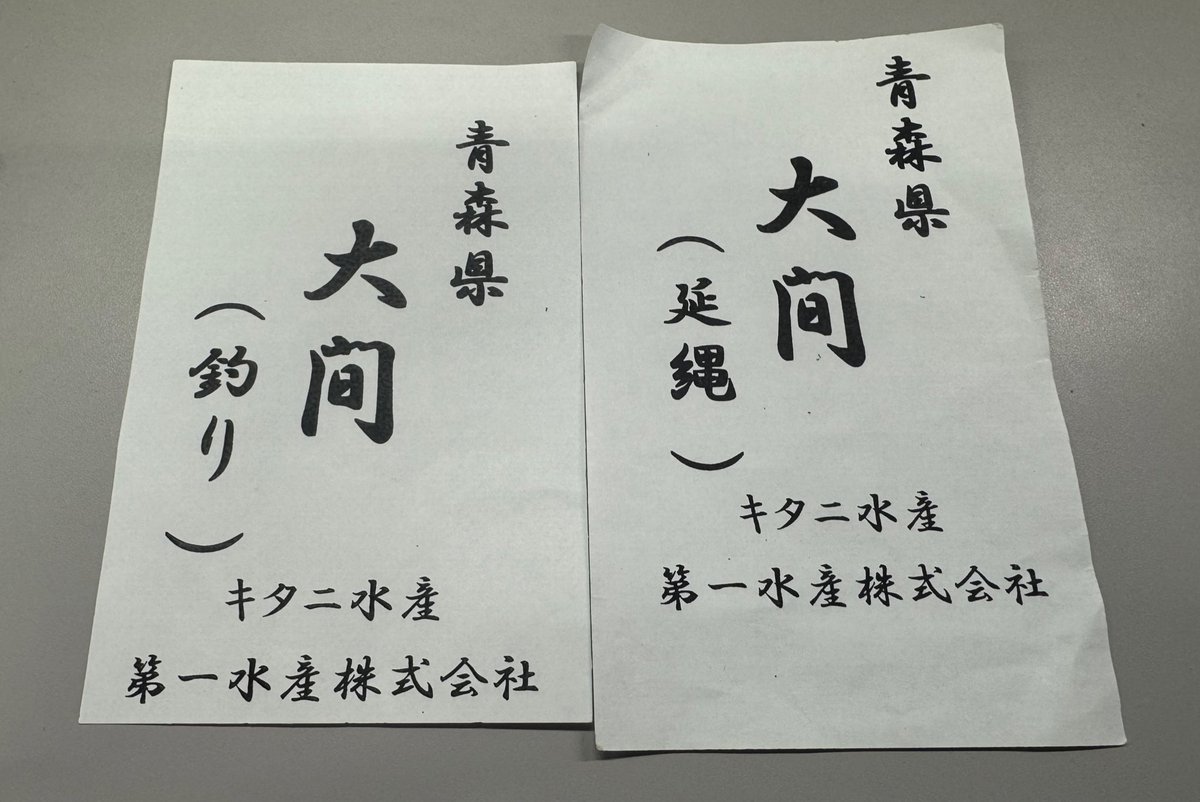 青森県
大間
（釣り）
キタニ水産
第一水産株式会社
青森県
大間
（延縄）
キタニ水産
第一水産株式会社